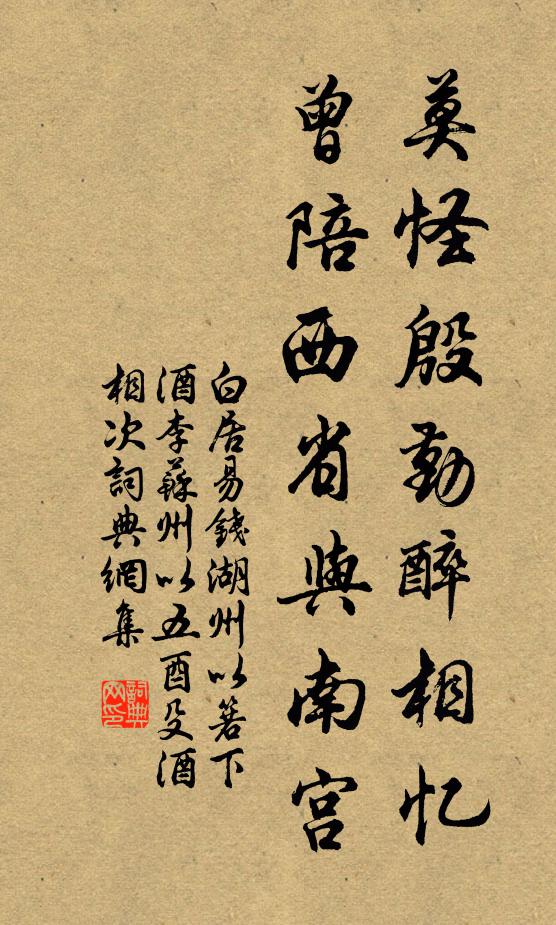 莫怪殷勤醉相忆
曾陪西省與南宫
白居易錢湖州以箬下
酒李蘇州以五酉殳酒
相次詞典網集
詞典
网印